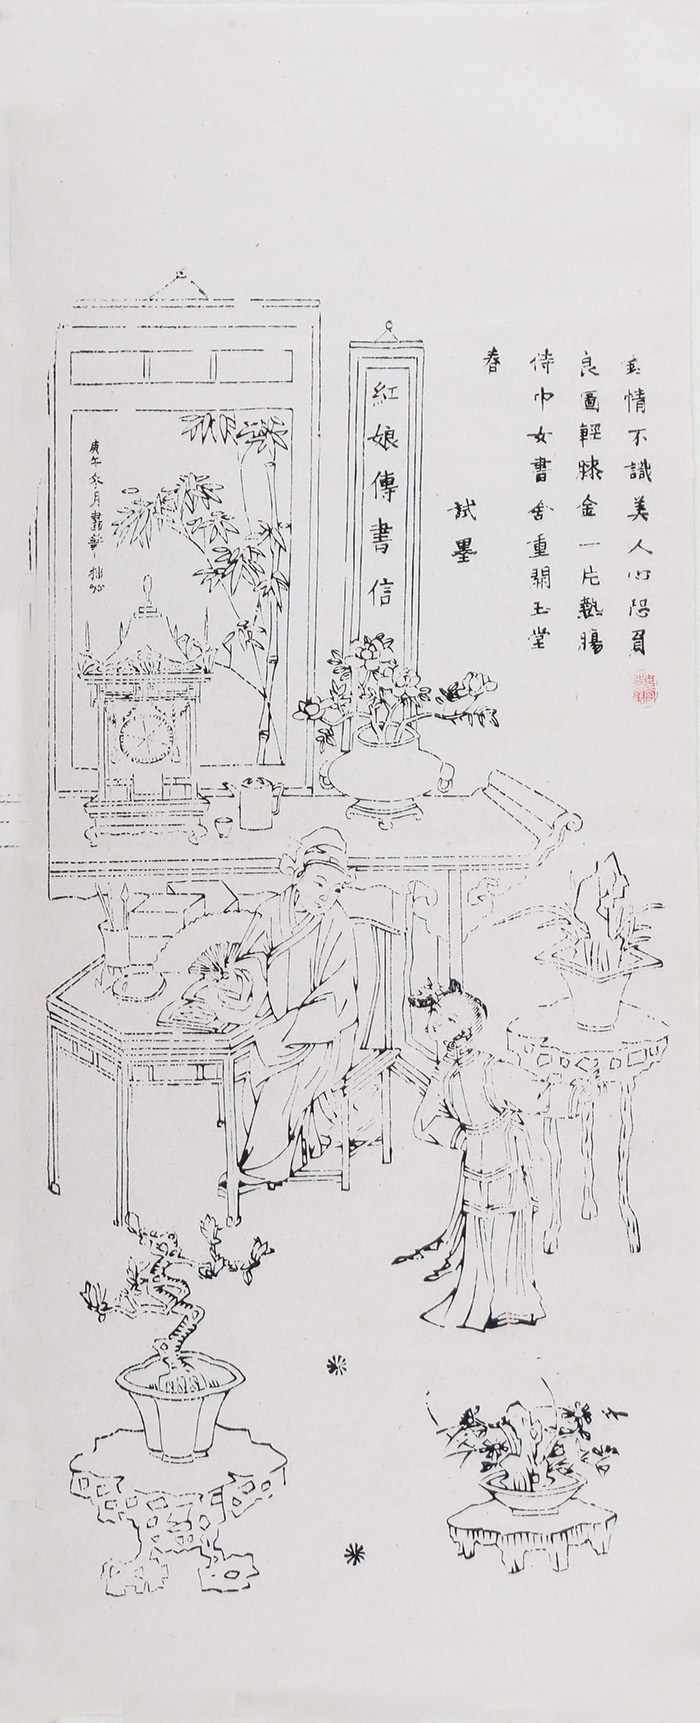 情不識美人心陷負
良圖輕賤金一片熱腸
侍巾女書舍重關玉堂
春
試墨
紅娘傳書信
庚午冬月